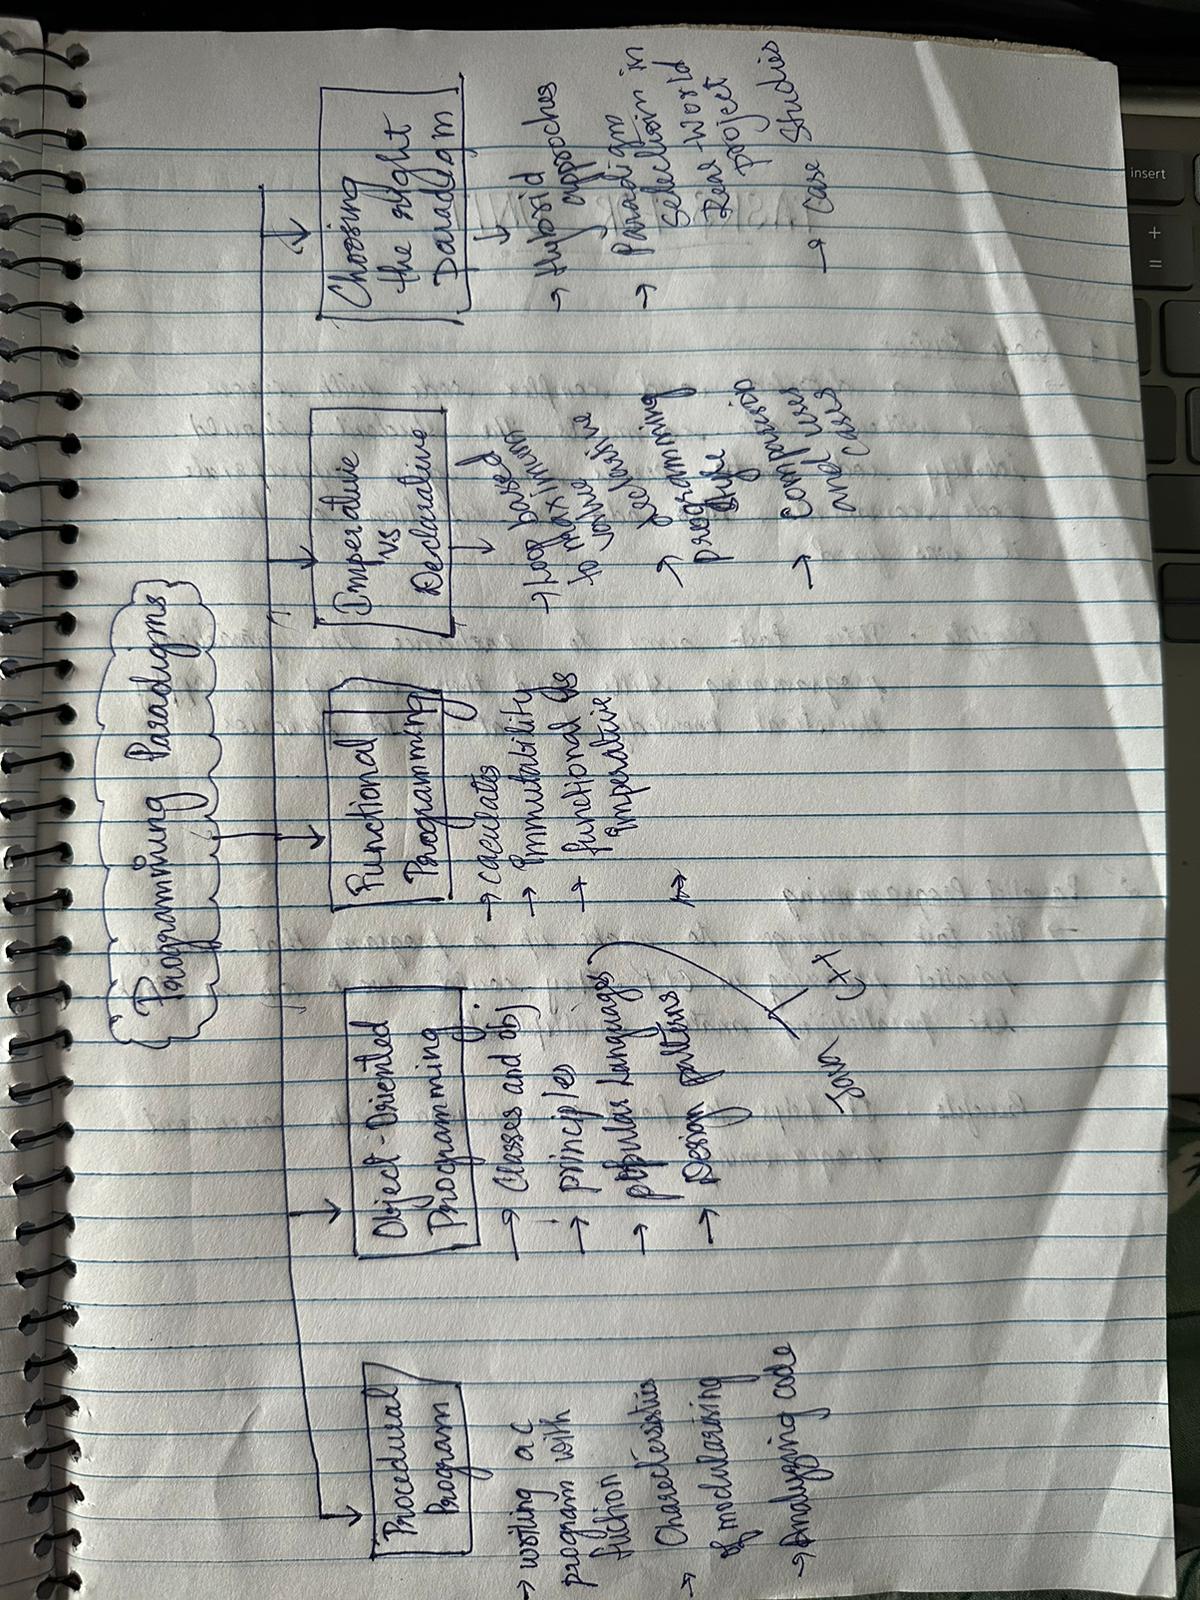 Programming Paradigms
Procedural
Program
→ writing a C
program with
fuction
→ Charecterstics
of modularising
→ Analyzing code
Object-Oriented
Programming
→ Classes and obj
→ principles
→ popular languages
→ Design patterns
Java C++
Functional
Programming
→ caculates
→ Immutability
→ functional vs
imperative
→
Imperative
vs
Declarative
→ Loop based
maximum
to
→ programming
style
→ Comparision
and uses
cases
Choosing
the right
Paradigm
→ Hybrid
approches
→ Paradigm
selection in
Real-World
project
→ Case studies